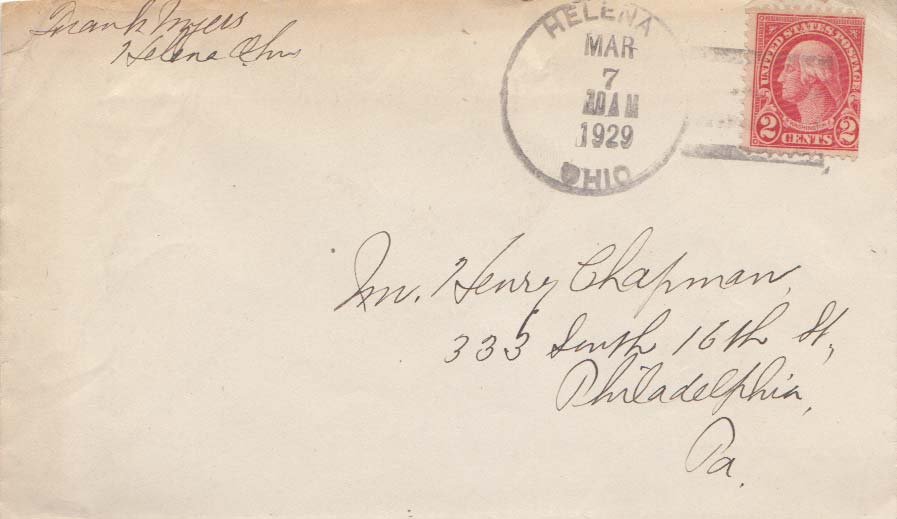 Frank Myers
Helena Ohio
HELENA
MAR
7
10 AM
1929
OHIO
UNITED STATES POSTAGE
WASHINGTON
2 CENTS 2
Mr. Henry Chapman,
333 South 16th St,
Philadelphia,
Pa.